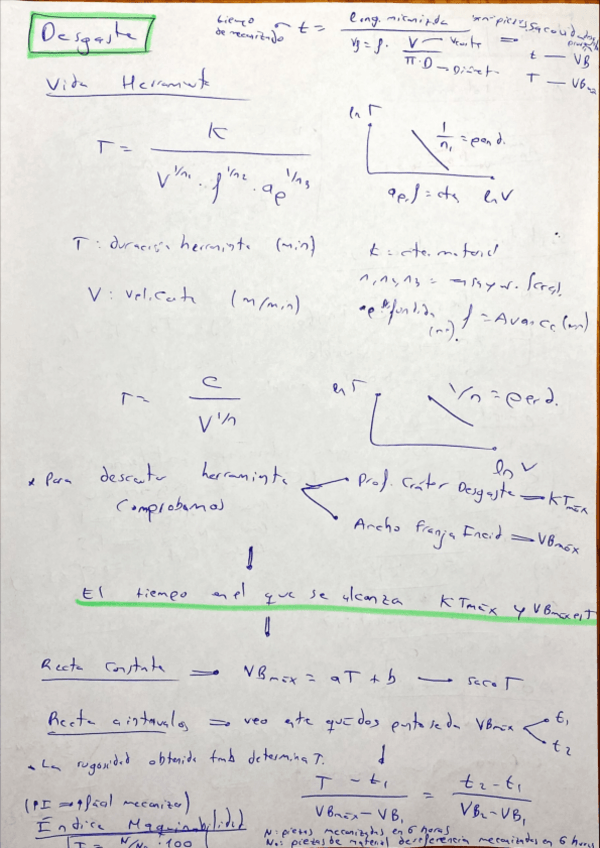 Desgaste
tiempo de mecanizado t = long. mecanizada / vf = f · V / π·D
V corte
Diámet
t — VB
T — VBmax
Vida Herramienta
T = K / V^1/n1 · f^1/n2 · ap^1/n3
ln T
1/n1 = pend.
ap, f = cte
ln V
T: duración herminta (min)
K = cte. material
V: vel. corte (m/min)
f = Avance (mm)
T = C / V^1/n
ln T
1/n = pend.
ln V
* Para descartar herramienta comprobamos
Prof. Cráter Desgaste = KTmáx
Ancho Franja Encid = VBmáx
El tiempo en el que se alcanza KTmáx y VBmáx es T
Recta Constate ⇒ VBmáx = aT + b → saco T
Recta a intavalos ⇒ veo ente qué dos puntos se da VBmáx
t1
t2
• La rugosidad obtenida tmb determina T.
T - t1 / VBmáx - VB1 = t2 - t1 / VB2 - VB1
(↑I ⇒ ↑fácil mecanizar)
Índice Maquinabilidad
I = N/No · 100
N: piezas mecanizadas en 6 horas
No: piezas de material de referencia mecanizadas en 6 horas